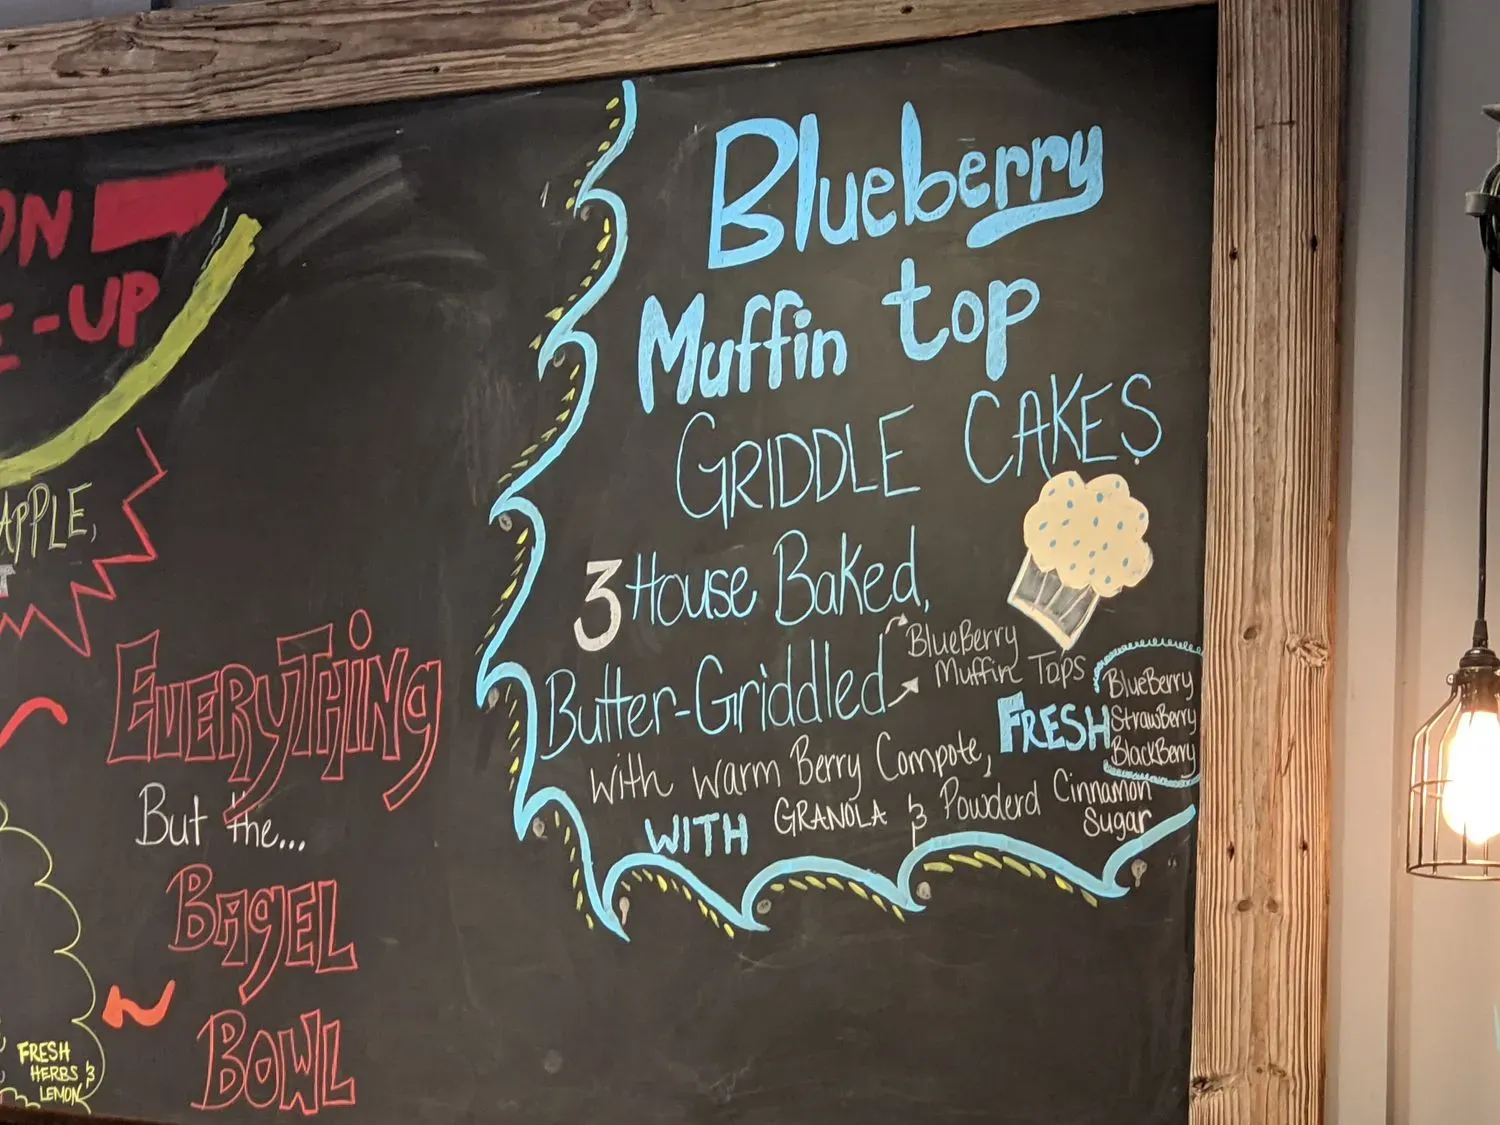 ON
-UP
APPLE,
EVERYTHING
But the...
BAGEL
BOWL
FRESH
HERBS &
LEMON
Blueberry
Muffin top
GRIDDLE CAKES
3 House Baked,
Butter-Griddled
BlueBerry
Muffin Tops
with warm Berry Compote,
FRESH
BlueBerry
StrawBerry
BlackBerry
WITH GRANOLA & Powderd Cinnamon
Sugar